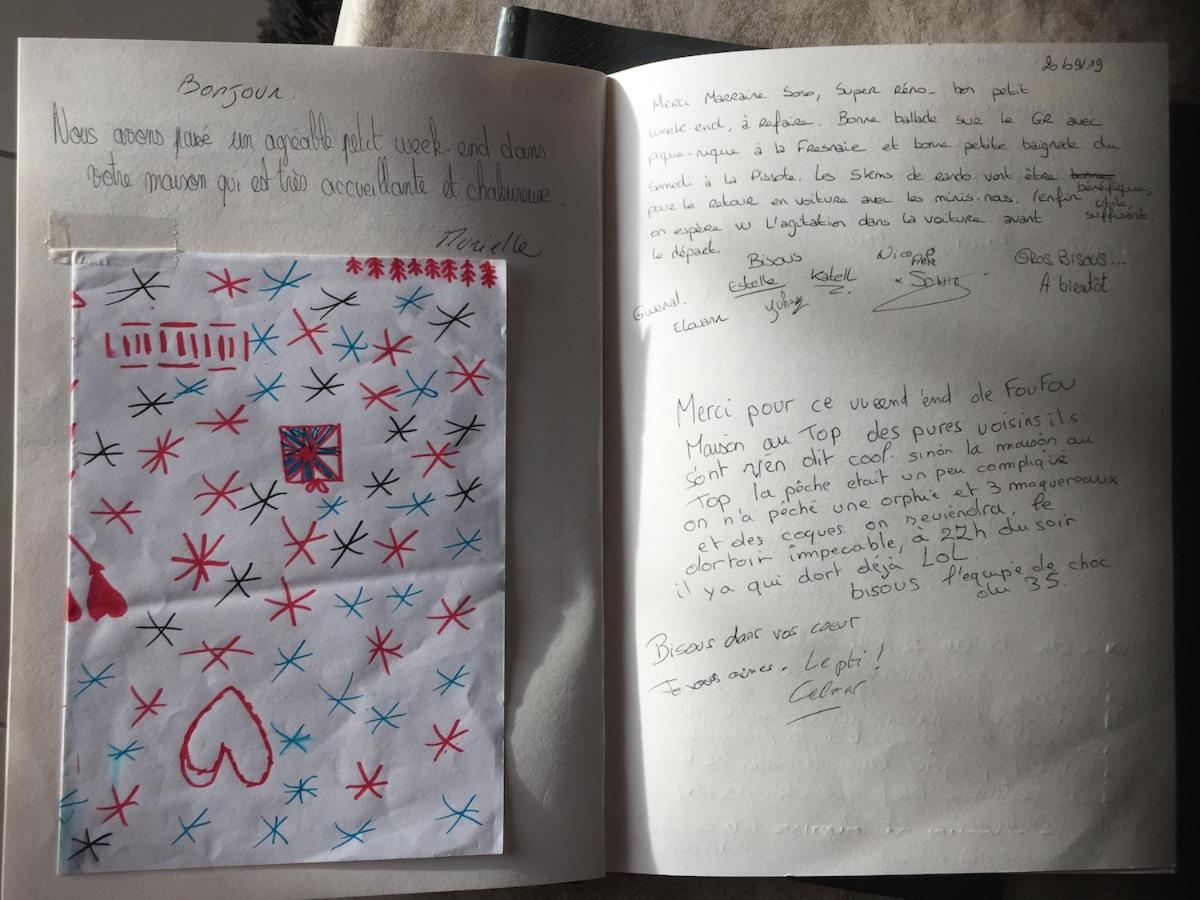 Bonjour.
Nous avons passé un agréable petit week-end dans
votre maison qui est très accueillante et chaleureuse.
Murielle
20/09/19
Merci Marraine Soso, Super Réno. bon petit
week-end, à refaire. Bonne ballade sur le GR avec
pique-nique à la Fresnaie et bonne petite baignade du
samedi à la Pissote. Les 5kms de rando vont être bénéfique,
pour le retour en voiture avec les minis-nous. (enfin utile,
on espère vu l'agitation dans la voiture avant suffisant.
le départ.
Bisous
Nico
Gros Bisous...
Estelle Katell
A bientôt
Gwenal.
Merci pour ce weend'end de FouFou
Maison au Top des pures voisins ils
sont rien dit cool sinon la maison au
Top la pêche etait un peu compliqué
on n'a pêché une orphie et 3 maquereaux
et des coques on reviendra, le
dortoir impecable, à 22h du soir
il ya qui dort déjà LOL
bisous l'equipe de choc
du 35.
Bisous dans vos coeur
Je vous aimes. Le pti!